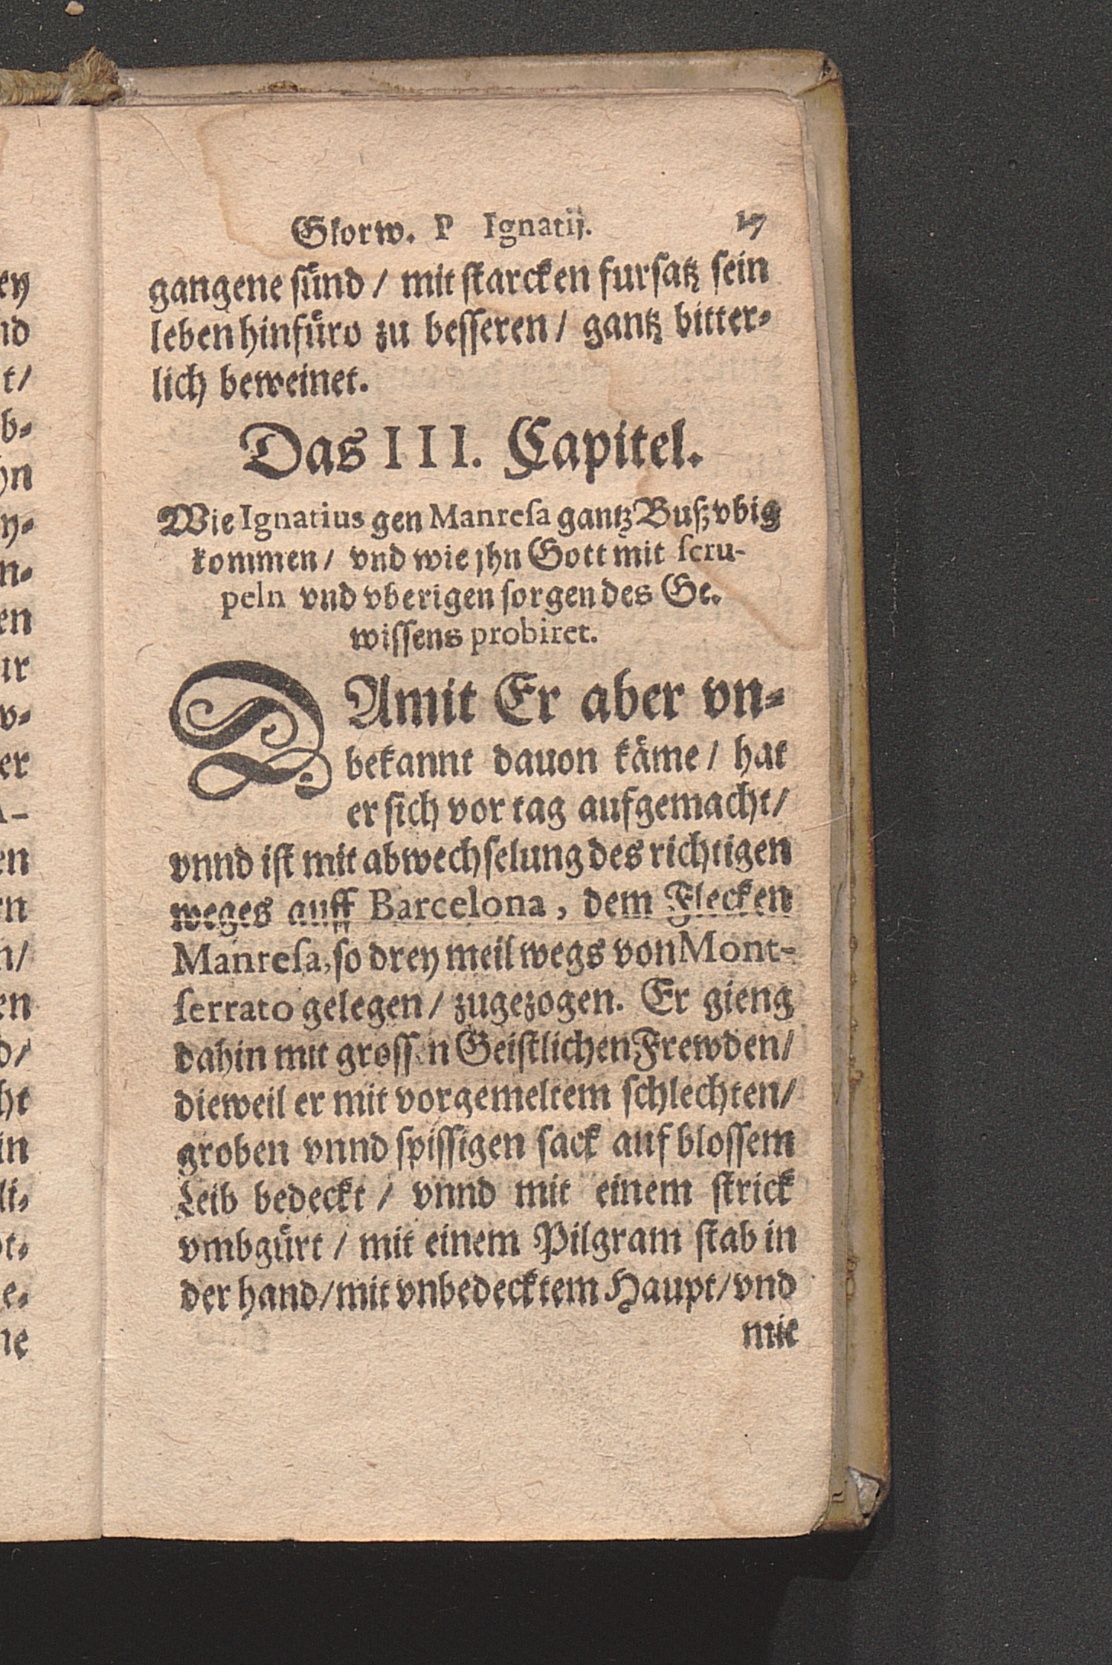 Glorw. P Ignatij. 17
gangene sünd / mit starcken fursatz sein
leben hinfüro zu besseren / gantz bitter-
lich beweinet.
Das III. Capitel.
Wie Ignatius gen Manresa gantz Bußvbig
kommen / vnd wie jhn Gott mit scru-
peln vnd vberigen sorgen des Ge-
wissens probiret.
DAmit Er aber vn-
bekannt dauon käme / hat
er sich vor tag aufgemacht /
vnnd ist mit abwechselung des richtigen
weges auff Barcelona, dem Flecken
Manresa, so drey meil wegs von Mont-
serrato gelegen / zugezogen. Er gieng
dahin mit grossen Geistlichen Frewden /
dieweil er mit vorgemeltem schlechten /
groben vnnd spissigen sack auf blossem
Leib bedeckt / vnnd mit einem strick
vmbgürt / mit einem Pilgram stab in
der hand / mit vnbedecktem Haupt / vnd
mit